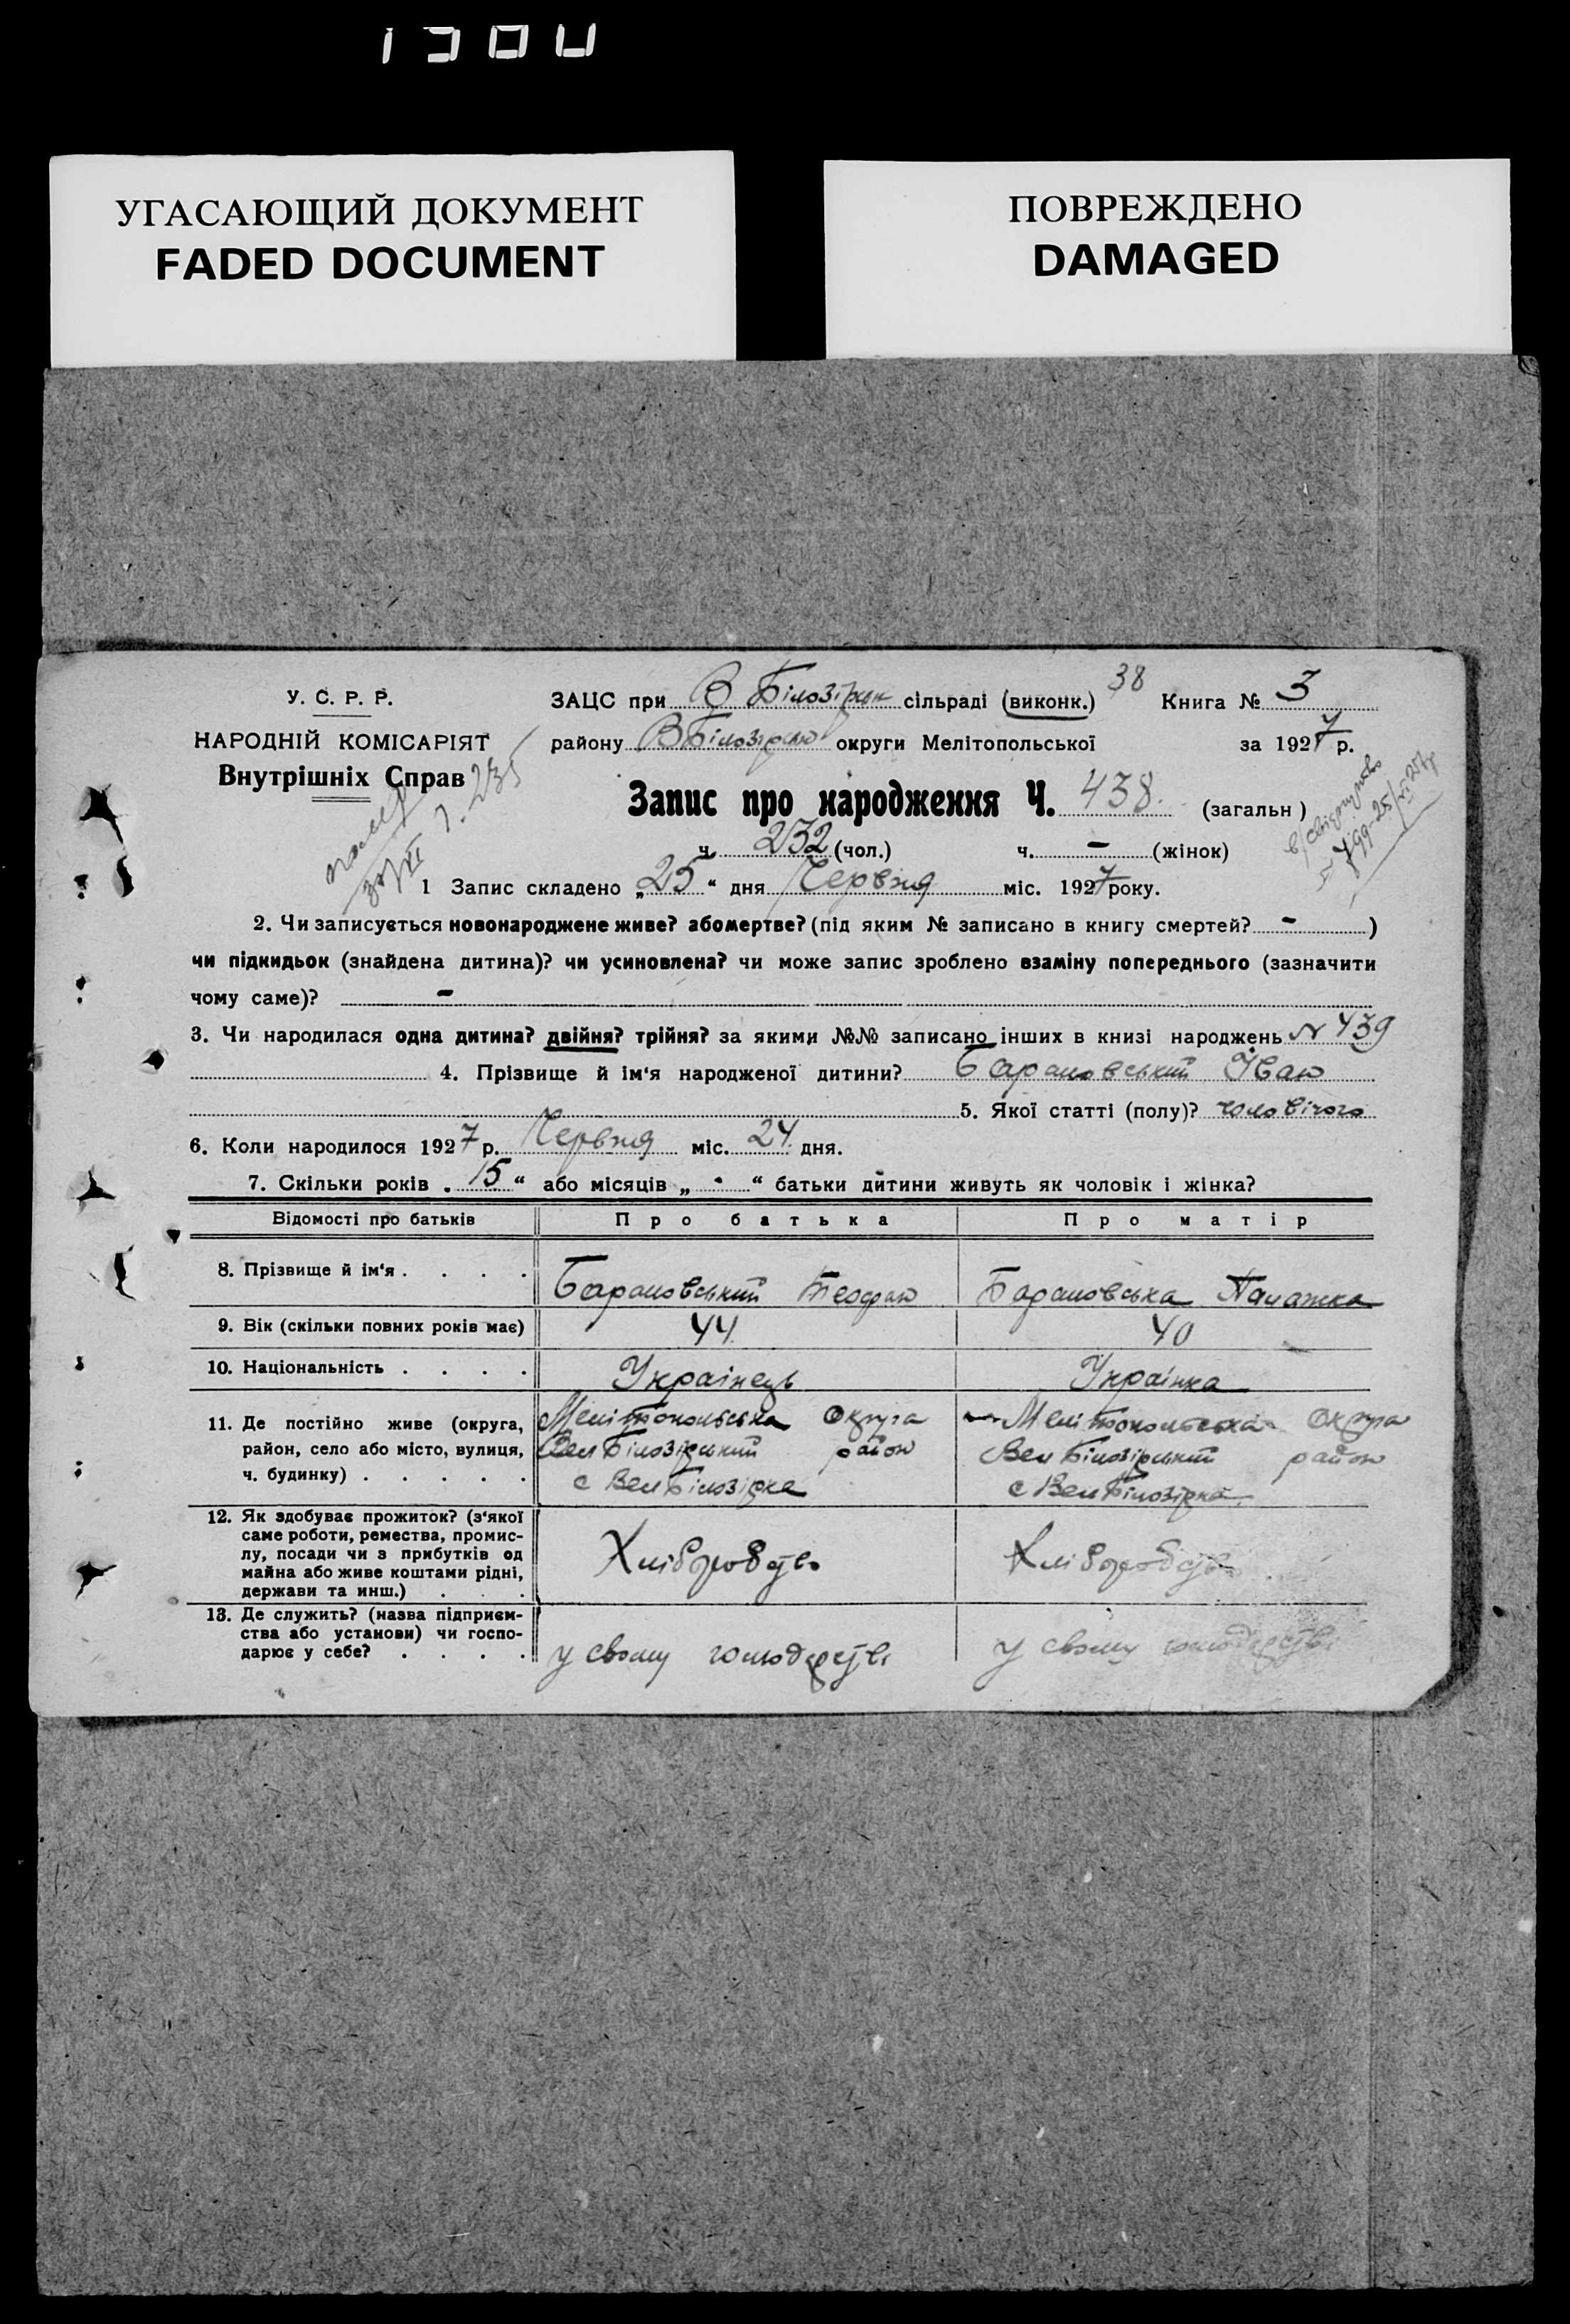 УГАСАЮЩИЙ ДОКУМЕНТ
FADED DOCUMENT
ПОВРЕЖДЕНО
DAMAGED
У. С. Р. Р.
НАРОДНІЙ КОМІСАРІЯТ
Внутрішніх Справ
ЗАЦС при В Білозірск сільраді (виконк.) 38 Книга № 3
району ВБілозірськ округи Мелітопольської за 1927 р.
Запис про народження Ч. 438 (загальн)
ч. 232 (чол.) ч. - (жінок)
1 Запис складено „25“ дня Червня міс. 1927 року.
2. Чи записується новонароджене живе? або мертве? (під яким № записано в книгу смертей? - )
чи підкидьок (знайдена дитина)? чи усиновлена? чи може запис зроблено взаміну попереднього (зазначити
чому саме)? -
3. Чи народилася одна дитина? двійня? трійня? за якими №№ записано інших в книзі народжень N 439
4. Прізвище й ім'я народженої дитини? Барановський Іван
5. Якої статті (полу)? чоловічого
6. Коли народилося 1927 р. Червня міс. 24 дня.
7. Скільки років „15“ або місяців „-“ батьки дитини живуть як чоловік і жінка?
Відомості про батьків Про батька Про матір
8. Прізвище й ім'я . . . . Барановський Теофан Барановська Палажка
9. Вік (скільки повних років має) 44 40
10. Національність . . . . Украінець Украінка
11. Де постійно живе (округа, Мелітопольська Округа Мелітопольська Округа
район, село або місто, вулиця, Вел Білозірський район Вел Білозірський район
ч. будинку) . . . . . с Вел Білозірка с Вел Білозірка
12. Як здобуває прожиток? (з'якої
саме роботи, ремества, промис-
лу, посади чи з прибутків од Хліборобство Хліборобство
майна або живе коштами рідні,
держави та инш.) . . .
13. Де служить? (назва підприєм-
ства або установи) чи госпо-
дарює у себе? . . . . у свому господарстві у свому господарстві